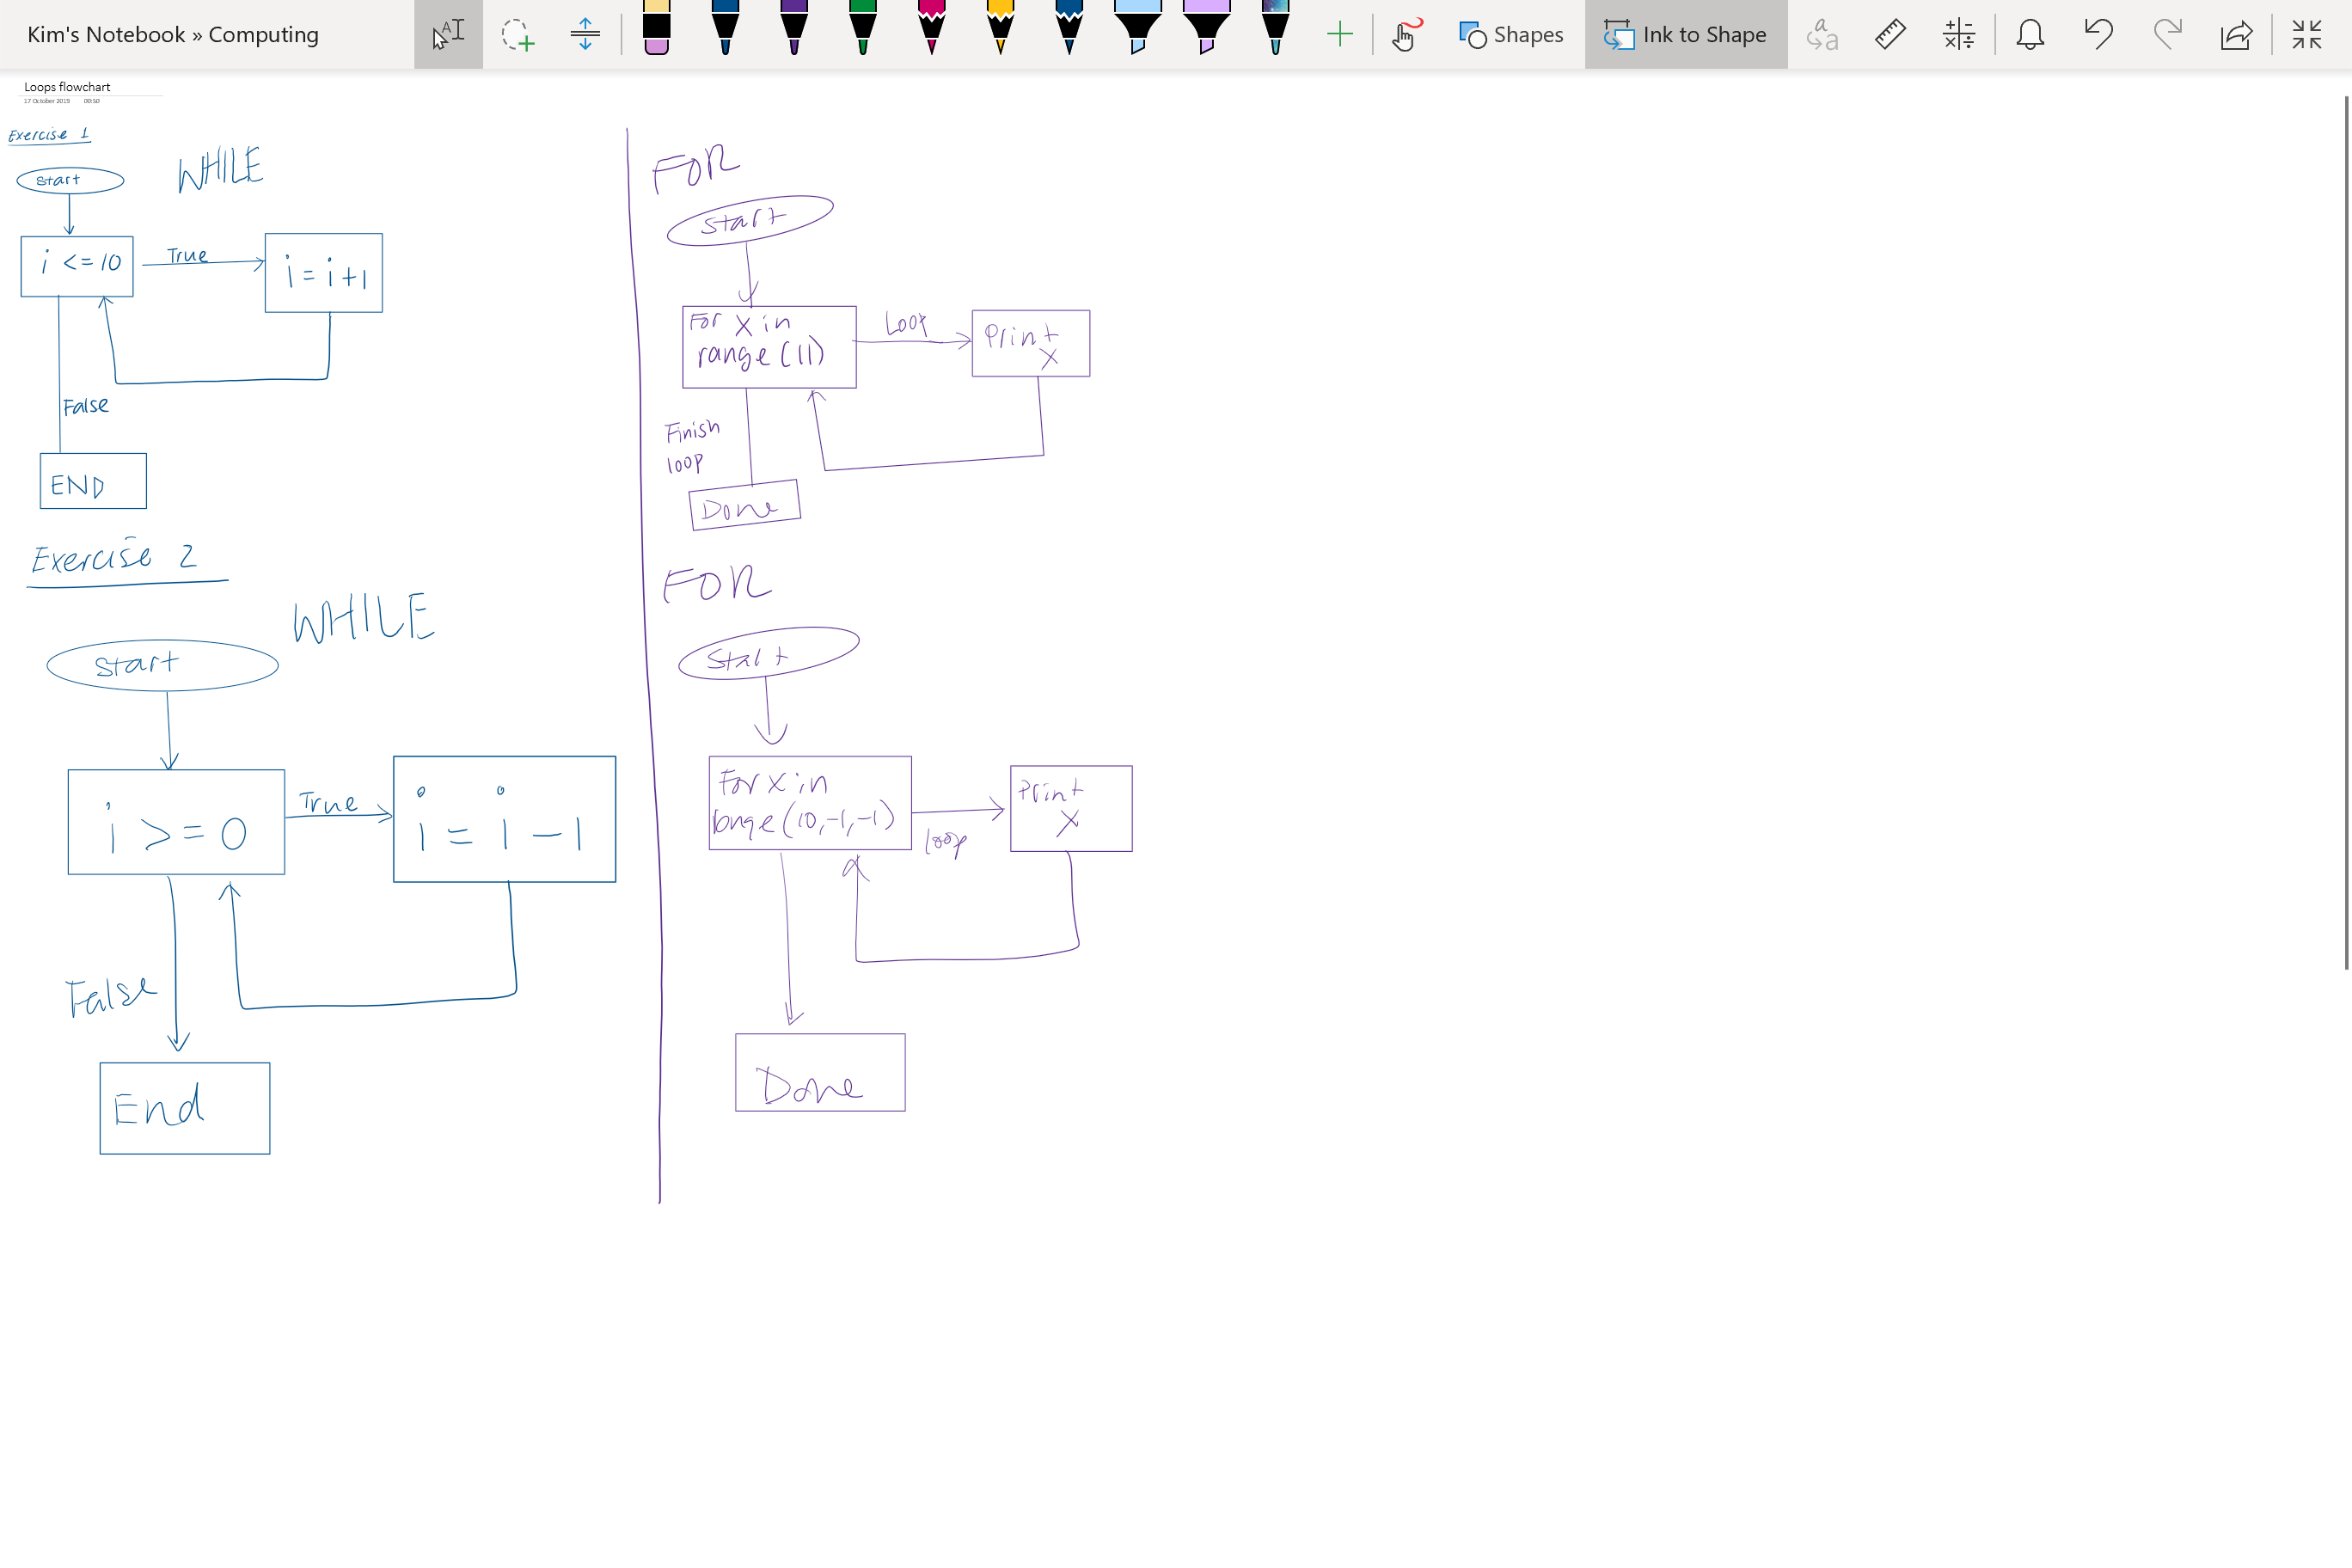 Kim's Notebook » Computing
Shapes
Ink to Shape
Loops flowchart
17 October 2019 00:50
Exercise 1
WHILE
Start
i <= 10
True
i = i + 1
False
END
Exercise 2
WHILE
Start
i >= 0
True
i = i - 1
False
End
FOR
Start
For x in
range (11)
Loop
Print
x
Finish
loop
Done
FOR
Start
For x in
range (10, -1, -1)
loop
Print
x
Done